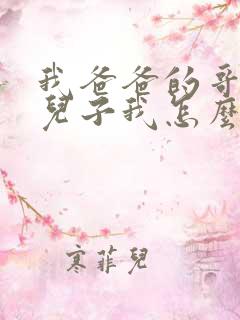 我爸爸的哥
兒子我怎麼
寒菲兒